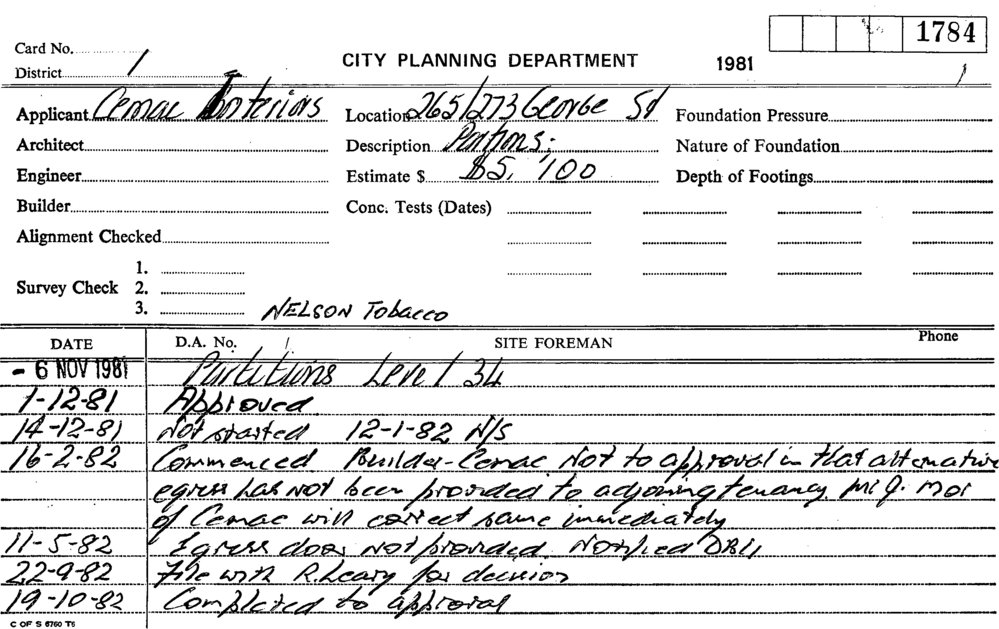 1784
Card No.
District 1
CITY PLANNING DEPARTMENT 1981
Applicant Cemac Interiors Location 265/273 George St Foundation Pressure
Architect Description Partions: Nature of Foundation
Engineer Estimate $ $5,100 Depth of Footings
Builder Conc. Tests (Dates)
Alignment Checked
1.
Survey Check 2.
3. NELSON Tobacco
DATE D.A. No. SITE FOREMAN Phone
- 6 NOV 1981 Partitions Level 34
1-12-81 Approved
14-12-81 Not started 12-1-82 N/S
16-2-82 Commenced Builder-Cemac Not to approval in that alternative
egress has not been provided to adjoining tenancy. Mr J.
of Cemac will correct same immediately
11-5-82 Egress door not provided. Notified
22-9-82 File with R. Leary for decision
19-10-82 Completed to approval
C OF S 6760 T6